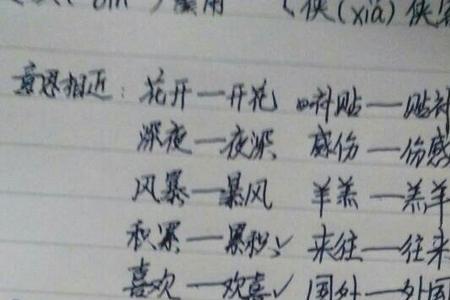 侠(xiá)侠客
意思相近:花开—开花 补贴—贴补
深夜—夜深 感伤—伤感
风暴—暴风 羊羔—羔羊
积累—累积✓ 来往—往来
喜欢—欢喜✓ 国外—外国